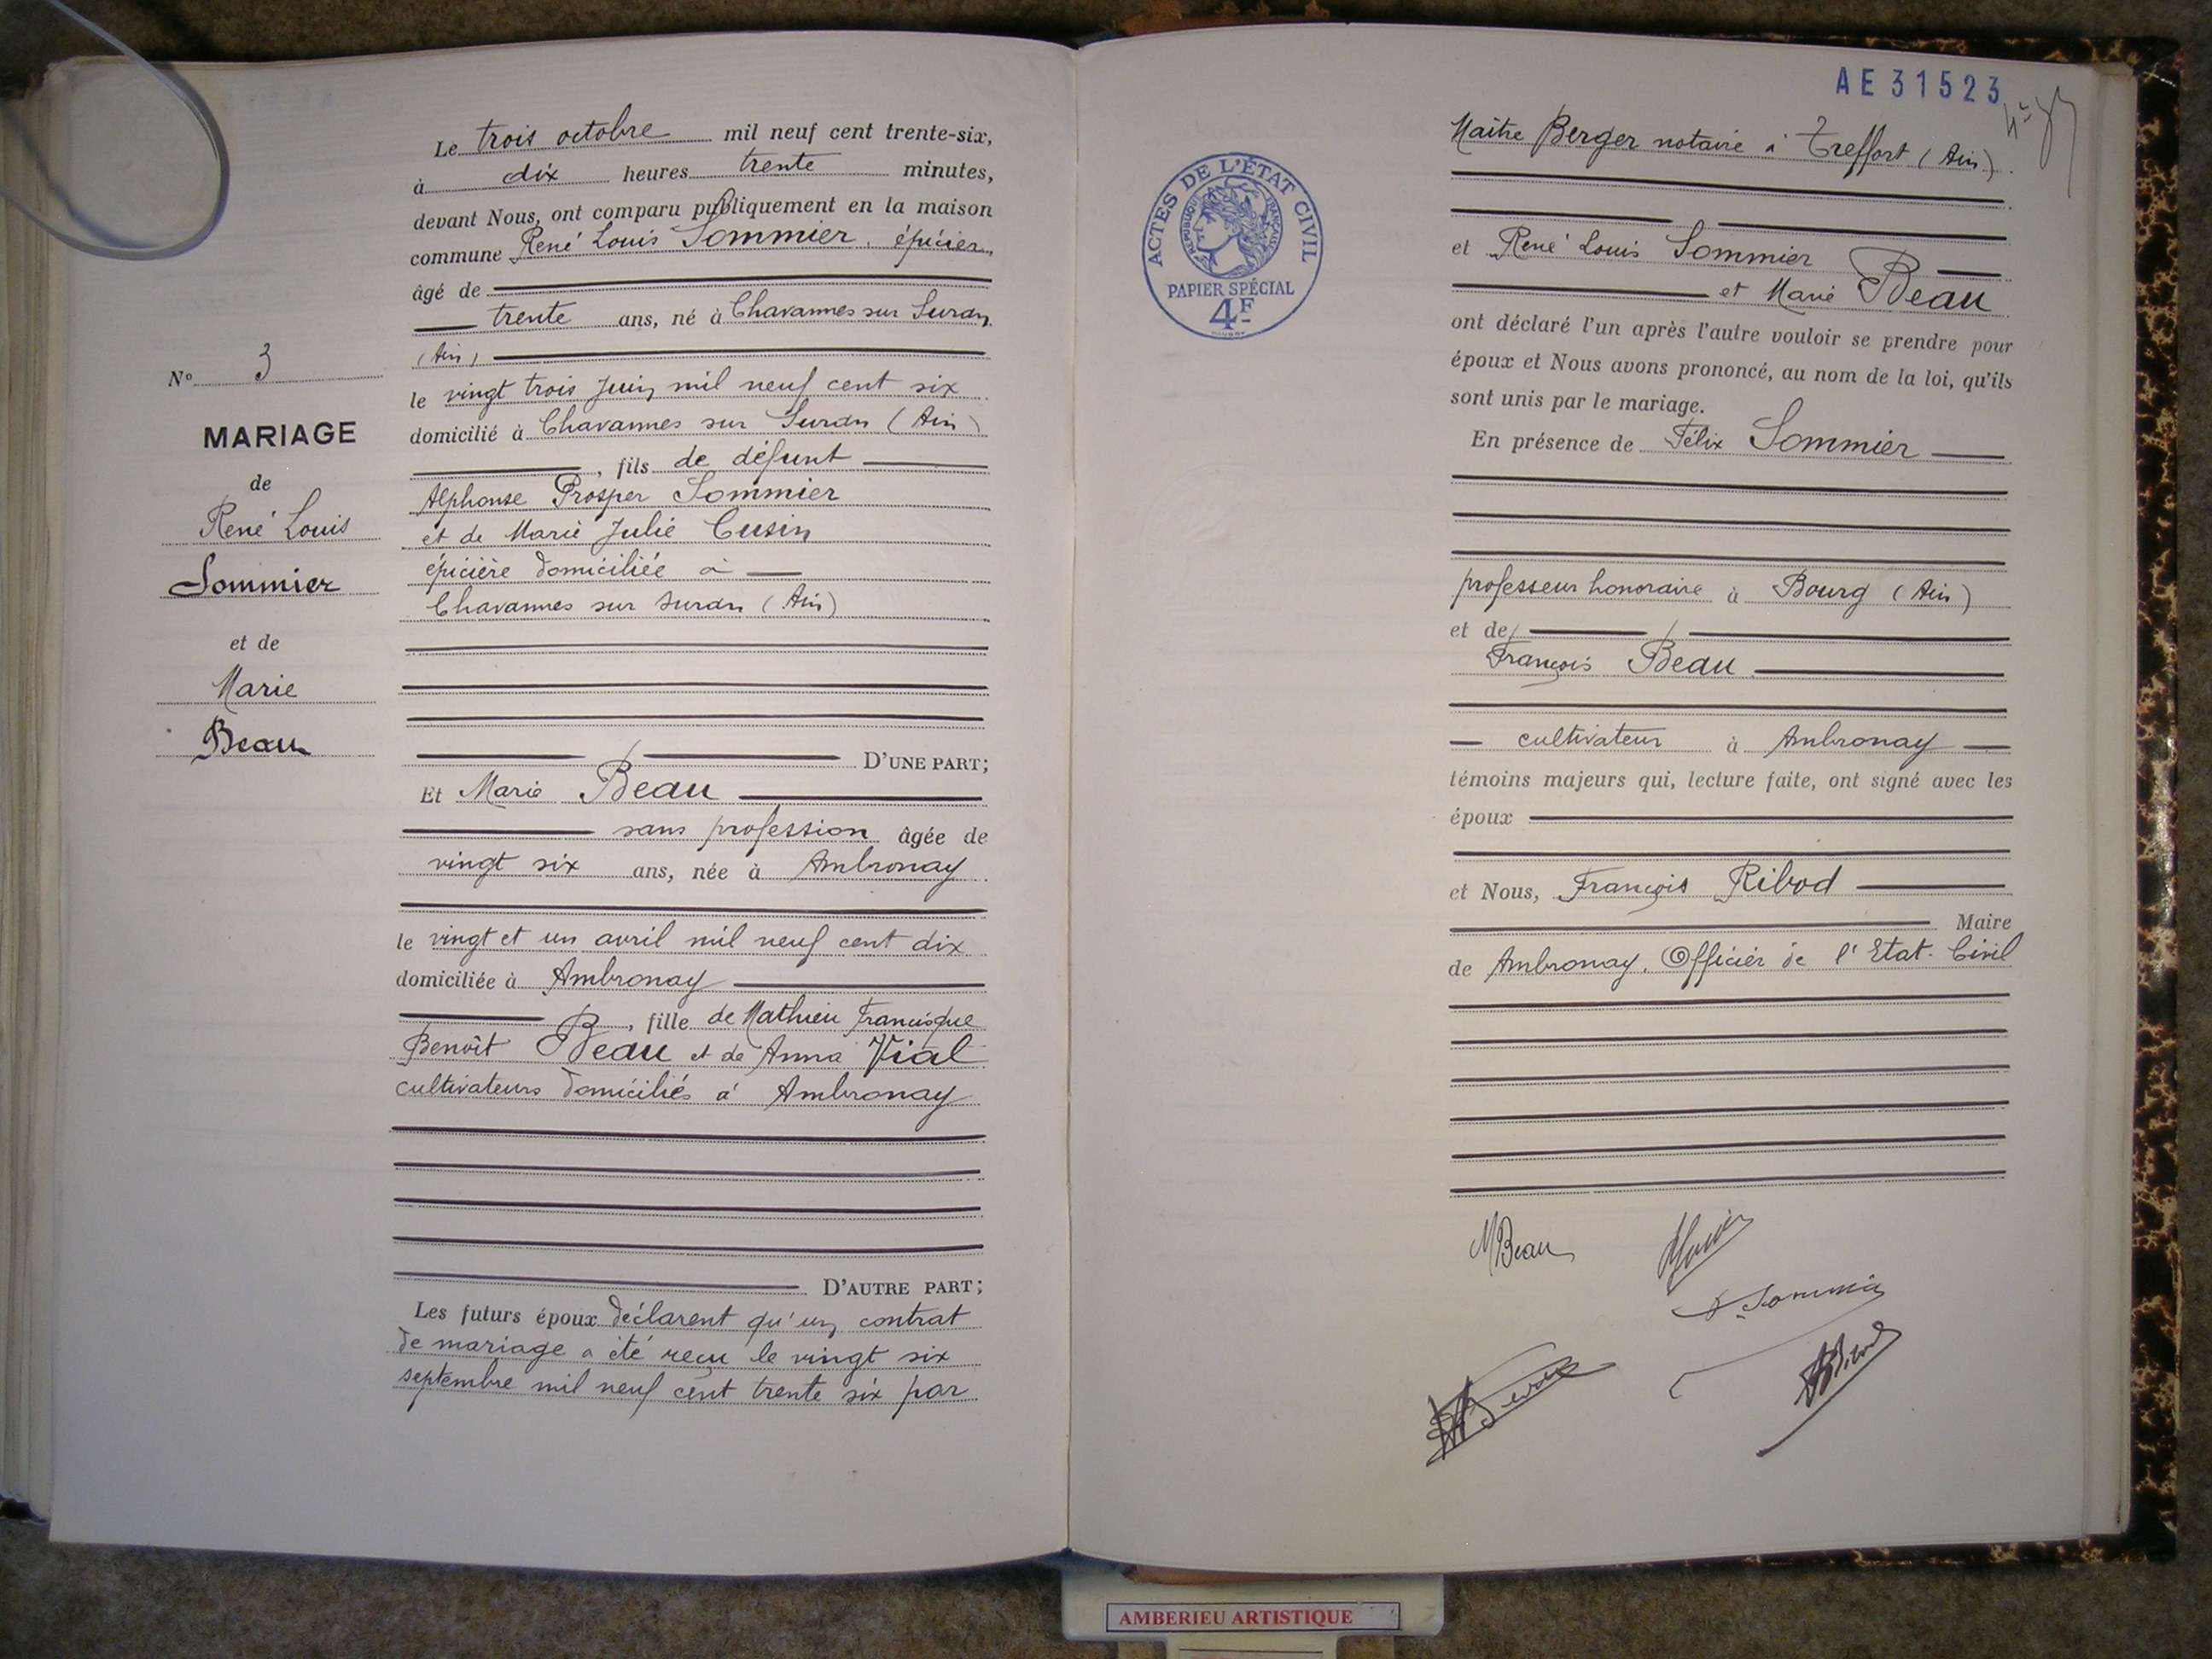 N° 3
MARIAGE
de
René Louis
Sommier
et de
Marie
Beau
Le trois octobre mil neuf cent trente-six,
à dix heures trente minutes,
devant Nous, ont comparu publiquement en la maison
commune René Louis Sommier, épicier
âgé de
trente ans, né à Chavannes sur Suran
(Ain)
le vingt trois Juin mil neuf cent six
domicilié à Chavannes sur Suran (Ain)
, fils de défunt
Alphonse Prosper Sommier
et de Marie Julie Cusin
épicière domiciliée à
Chavannes sur Suran (Ain)
D'UNE PART;
Et Marie Beau
sans profession âgée de
vingt six ans, née à Ambronay
le vingt et un avril mil neuf cent dix
domiciliée à Ambronay
, fille de Mathieu Francisque
Benoît Beau et de Anna Vial
cultivateurs domiciliés à Ambronay
D'AUTRE PART;
Les futurs époux déclarent qu'un contrat
de mariage a été reçu le vingt six
septembre mil neuf cent trente six par
AE31523
ACTES DE L'ÉTAT CIVIL
RÉPUBLIQUE FRANÇAISE
PAPIER SPÉCIAL
4F
Maître Berger notaire à Treffort (Ain).
et René Louis Sommier
et Marie Beau
ont déclaré l'un après l'autre vouloir se prendre pour
époux et Nous avons prononcé, au nom de la loi, qu'ils
sont unis par le mariage.
En présence de Félix Sommier
professeur honoraire à Bourg (Ain)
et de
François Beau
cultivateur à Ambronay
témoins majeurs qui, lecture faite, ont signé avec les
époux
et Nous, François Ribod
Maire
de Ambronay, Officier de l'Etat-Civil
MBeau
Sommier
AMBERIEU ARTISTIQUE